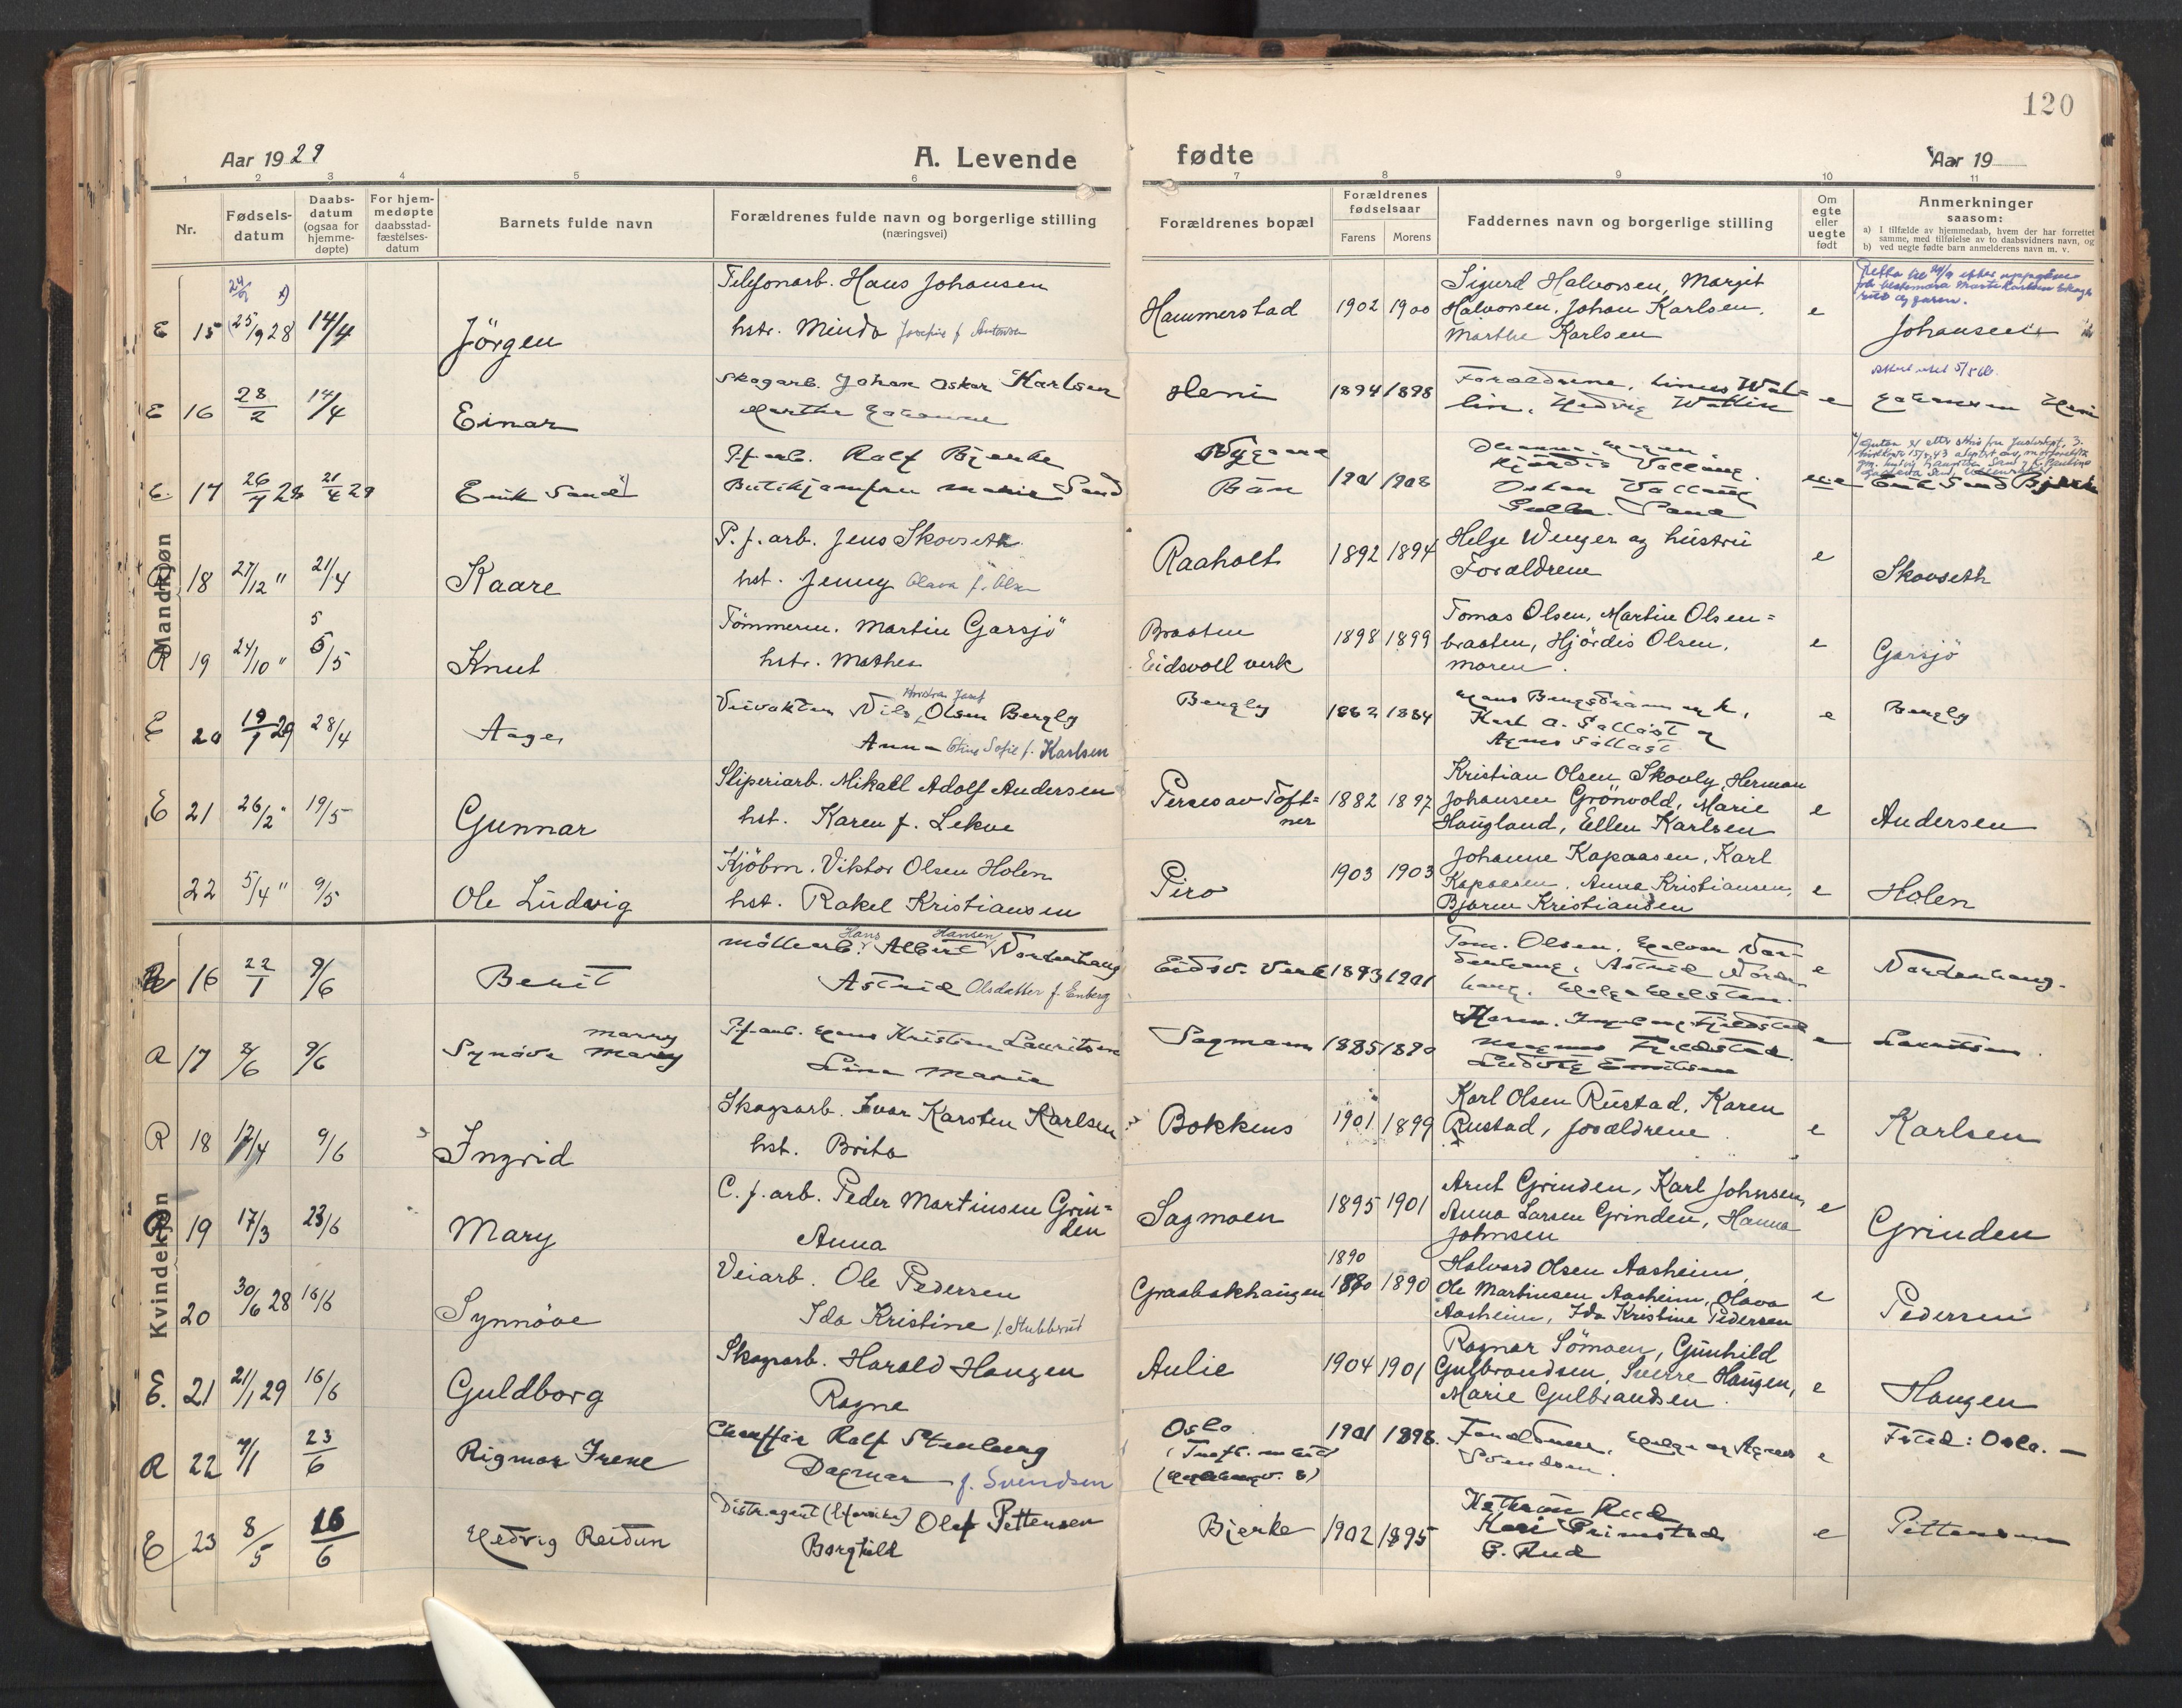 120
Aar 1929
A. Levende
fødte
Aar 19
1 2 3 4 5 6 7 8 9 10 11
Nr.
Fødsels-
datum
Daabs-
datum
(ogsaa for
hjemme-
døpte)
For hjem-
medøpte
daabsstad-
fæstelses-
datum
Barnets fulde navn
Forældrenes fulde navn og borgerlige stilling
(næringsvei)
Forældrenes bopæl
Forældrenes
fødselsaar
Farens Morens
Faddernes navn og borgerlige stilling
Om
egte
eller
uegte
født
Anmerkninger
saasom:
a) I tilfælde av hjemmedaab, hvem der har forrettet
samme, med tilføielse av to daabsvidners navn, og
b) ved uegte fødte barn anmelderens navn m. v.
Mandkjøn
E 15 25/9 28 14/4
Jörgen
Telefonarb. Hans Johansen
hstr. Minda Josefine f. Antonsen
Hammerstad
1902 1900
Sigurd Halvorsen, Margit
Halvorsen, Johan Karlsen,
Marthe Karlsen
e
Johansen
E 16 28/2 14/4
Einar
Skogarb. Johan Oskar Karlsen
Marthe
Heni
1894 1898
Forældrene, Linus Wal=
lin, Hedvig Wallin
e
Heni
E. 17 26/7 28 21/4 29
Erik Sand
P.f.arb. Ralf Bjerke
Butikjomfru Marie Sand
Nygaard
Bön
1901 1908
Hjørdis Vallang
Oskar Vallang
Sand
Erik Sand Bjerke
R 18 27/12 " 21/4
Kaare
P. f. arb. Jens Skovseth
hst. Jenny Olava f. Olsen
Raaholt
1892 1894
Helge Winger og hüstrü
Forældrene
e
Skovseth
R 19 24/10 " 5/5
Knut
Tömmerm. Martin Garsjö
hstr. Mathea
Braaten
Eidsvoll verk
1898 1899
Tomas Olsen, Martin Olsen=
braaten, Hjördis Olsen,
moren.
e
Garsjö
E 20 19/1 29 28/4
Aage
Veivokter Nils Olsen Bergly
Anna Stine Sofie f. Karlsen
Bergly
1882 1884
Hans Bengström og h.,
Karl A. Sållast og
Agnes Sållast
e
Bergly
E 21 26/2 " 19/5
Gunnar
Sliperiarb. Mikall Adolf Andersen
hst. Karen f. Lekve
Persesav Toft=
ner
1882 1897
Kristian Olsen Skovly, Herman
Johansen Grönvold, Marie
Haugland, Ellen Karlsen
e
Andersen
22 5/4 " 9/5
Ole Lüdvig
Kjöbm. Viktor Olsen Holen
hst. Rakel Kristiansen
Piro
1903 1903
Johanne Kapaasen, Karl
Kapaasen, Anna Kristiansen,
Bjarne Kristiansen
e
Holen
Kvindekjøn
R 16 22/1 9/6
Berit
Hans Hansen
Möllearb. Albert Nordenhaug
Astrid Olsdatter f. Enberg
Eidsv. Verk
1893 1901
Tom. Olsen, Halvor Nor-
denhaug, Astrid Norden-
haug, Helga Helsten.
e
Nordenhaug.
R 17 8/6 9/6
Marry
Synöve
P.f.arb. Hans Kristian Lauritsen
Lina Marie
Sagmoen
1885 1890
Karen, Ingeborg Fjeldstad
Magnus Fjeldstad
Ludvig
e
Lauritsen.
R 18 17/4 9/6
Ingrid
Skogsarb. Ivar Karsten Karlsen
hst. Brita
Bokkens
1901 1899
Karl Olsen Rüstad, Karen
Rustad, forældrene.
e
Karlsen
R 19 17/3 23/6
Mary
C. f. arb. Peder Martinsen Grin=
den
Anna
Sagmoen
1895 1901
Arnt Grinden, Karl Johnsen,
Anna Larsen Grinden, Hanna
Johnsen
e
Grinden
20 30/6 28 16/6
Synnöve
Veiarb. Ole Pedersen
Ida Kristine f. Stubberud
Graabakhaugen
1890
1880 1890
Halvard Olsen Aasheim,
Ole Martinsen Aasheim, Olava
Aasheim, Ida Kristine Pedersen
e
Pedersen
E. 21 21/1 29 16/6
Guldborg
Skogsarb. Harald Haugen
Ragna
Aulie
1904 1901
Ragnar Sömoen, Günhild
Gulbrandsen, Sverre Haugen,
Marie Gulbrandsen.
e
Haugen
R 22 7/1 23/6
Rigmor Irene
Chauffør Ralf Stenberg
Dagmar f. Svendsen
Oslo
1901 1898.
Forældrene, Helge og Agnes
Svendsen.
e
Fsted: Oslo. —
E 23 8/5 16/6
Hedvig Reidun
Distr.agent Olaf Pettersen
Borghild
Bjerke
1902 1895
Kathrine Rud
Kari Grimstad
G. Rud
e
Pettersen